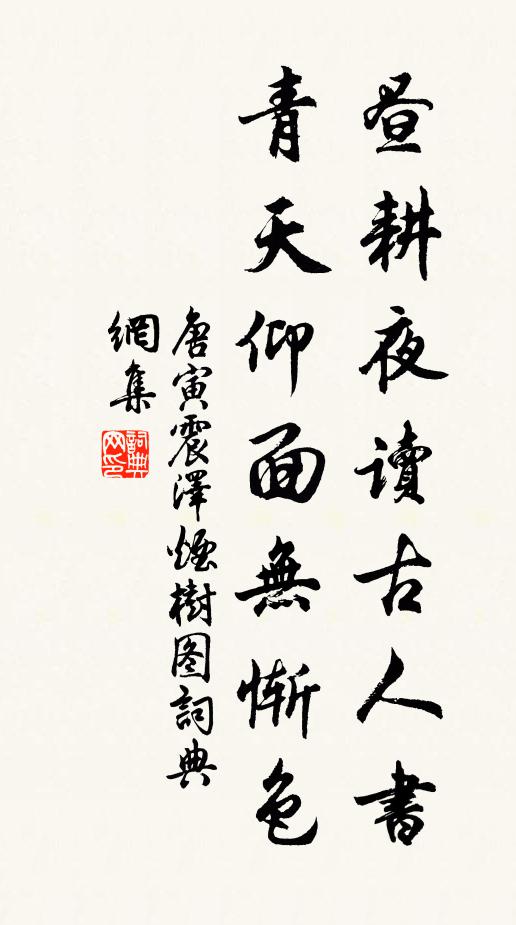 昼耕夜讀古人書
青天仰面無慚色
唐寅震澤煙樹图詞典
網集
詞典
网印